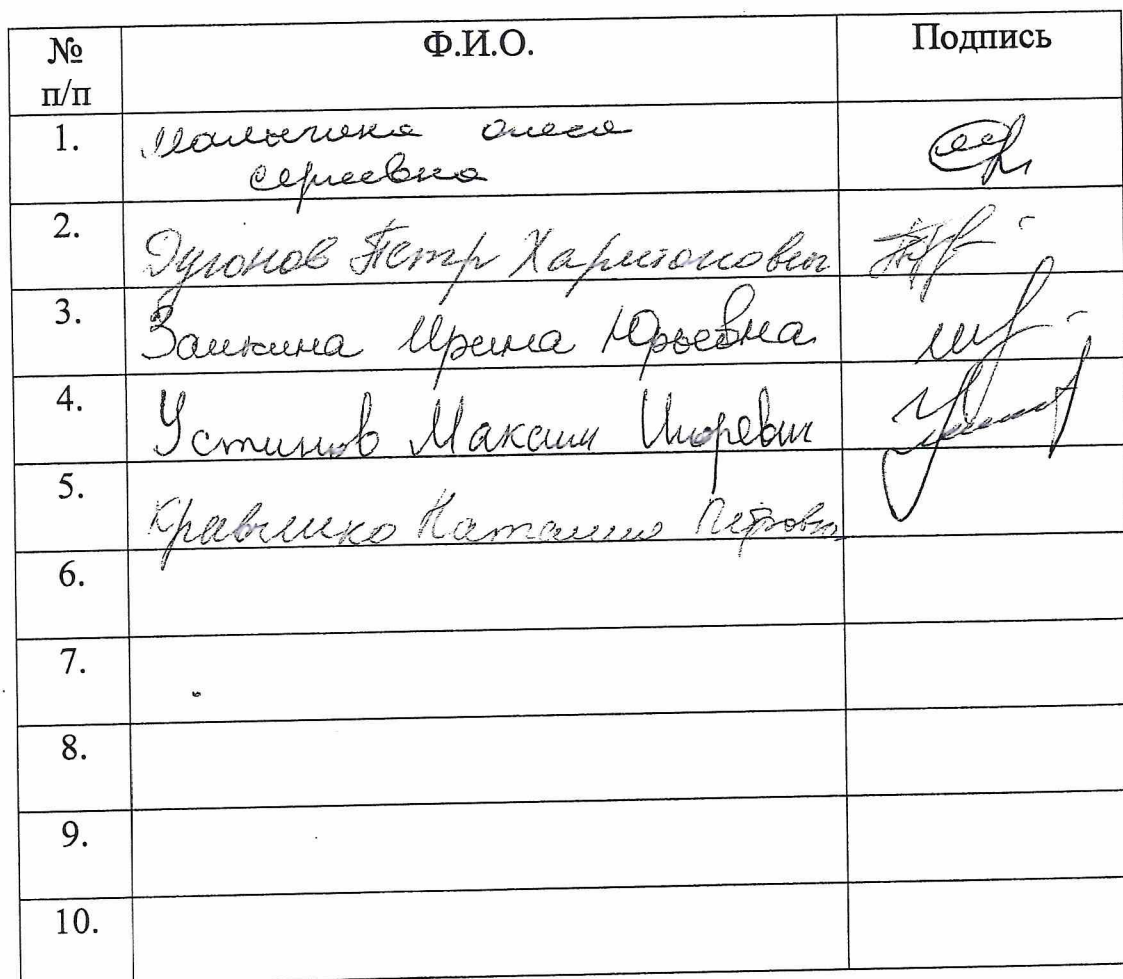 № Ф.И.О. Подпись
п/п
1. Малыгина Олеся
Сергеевна
2. Дугонов Петр Харитонович
3. Заикина Ирина Юрьевна
4. Устинов Максим Игоревич
5. Кравченко Наталия Петровна
6.
7.
8.
9.
10.